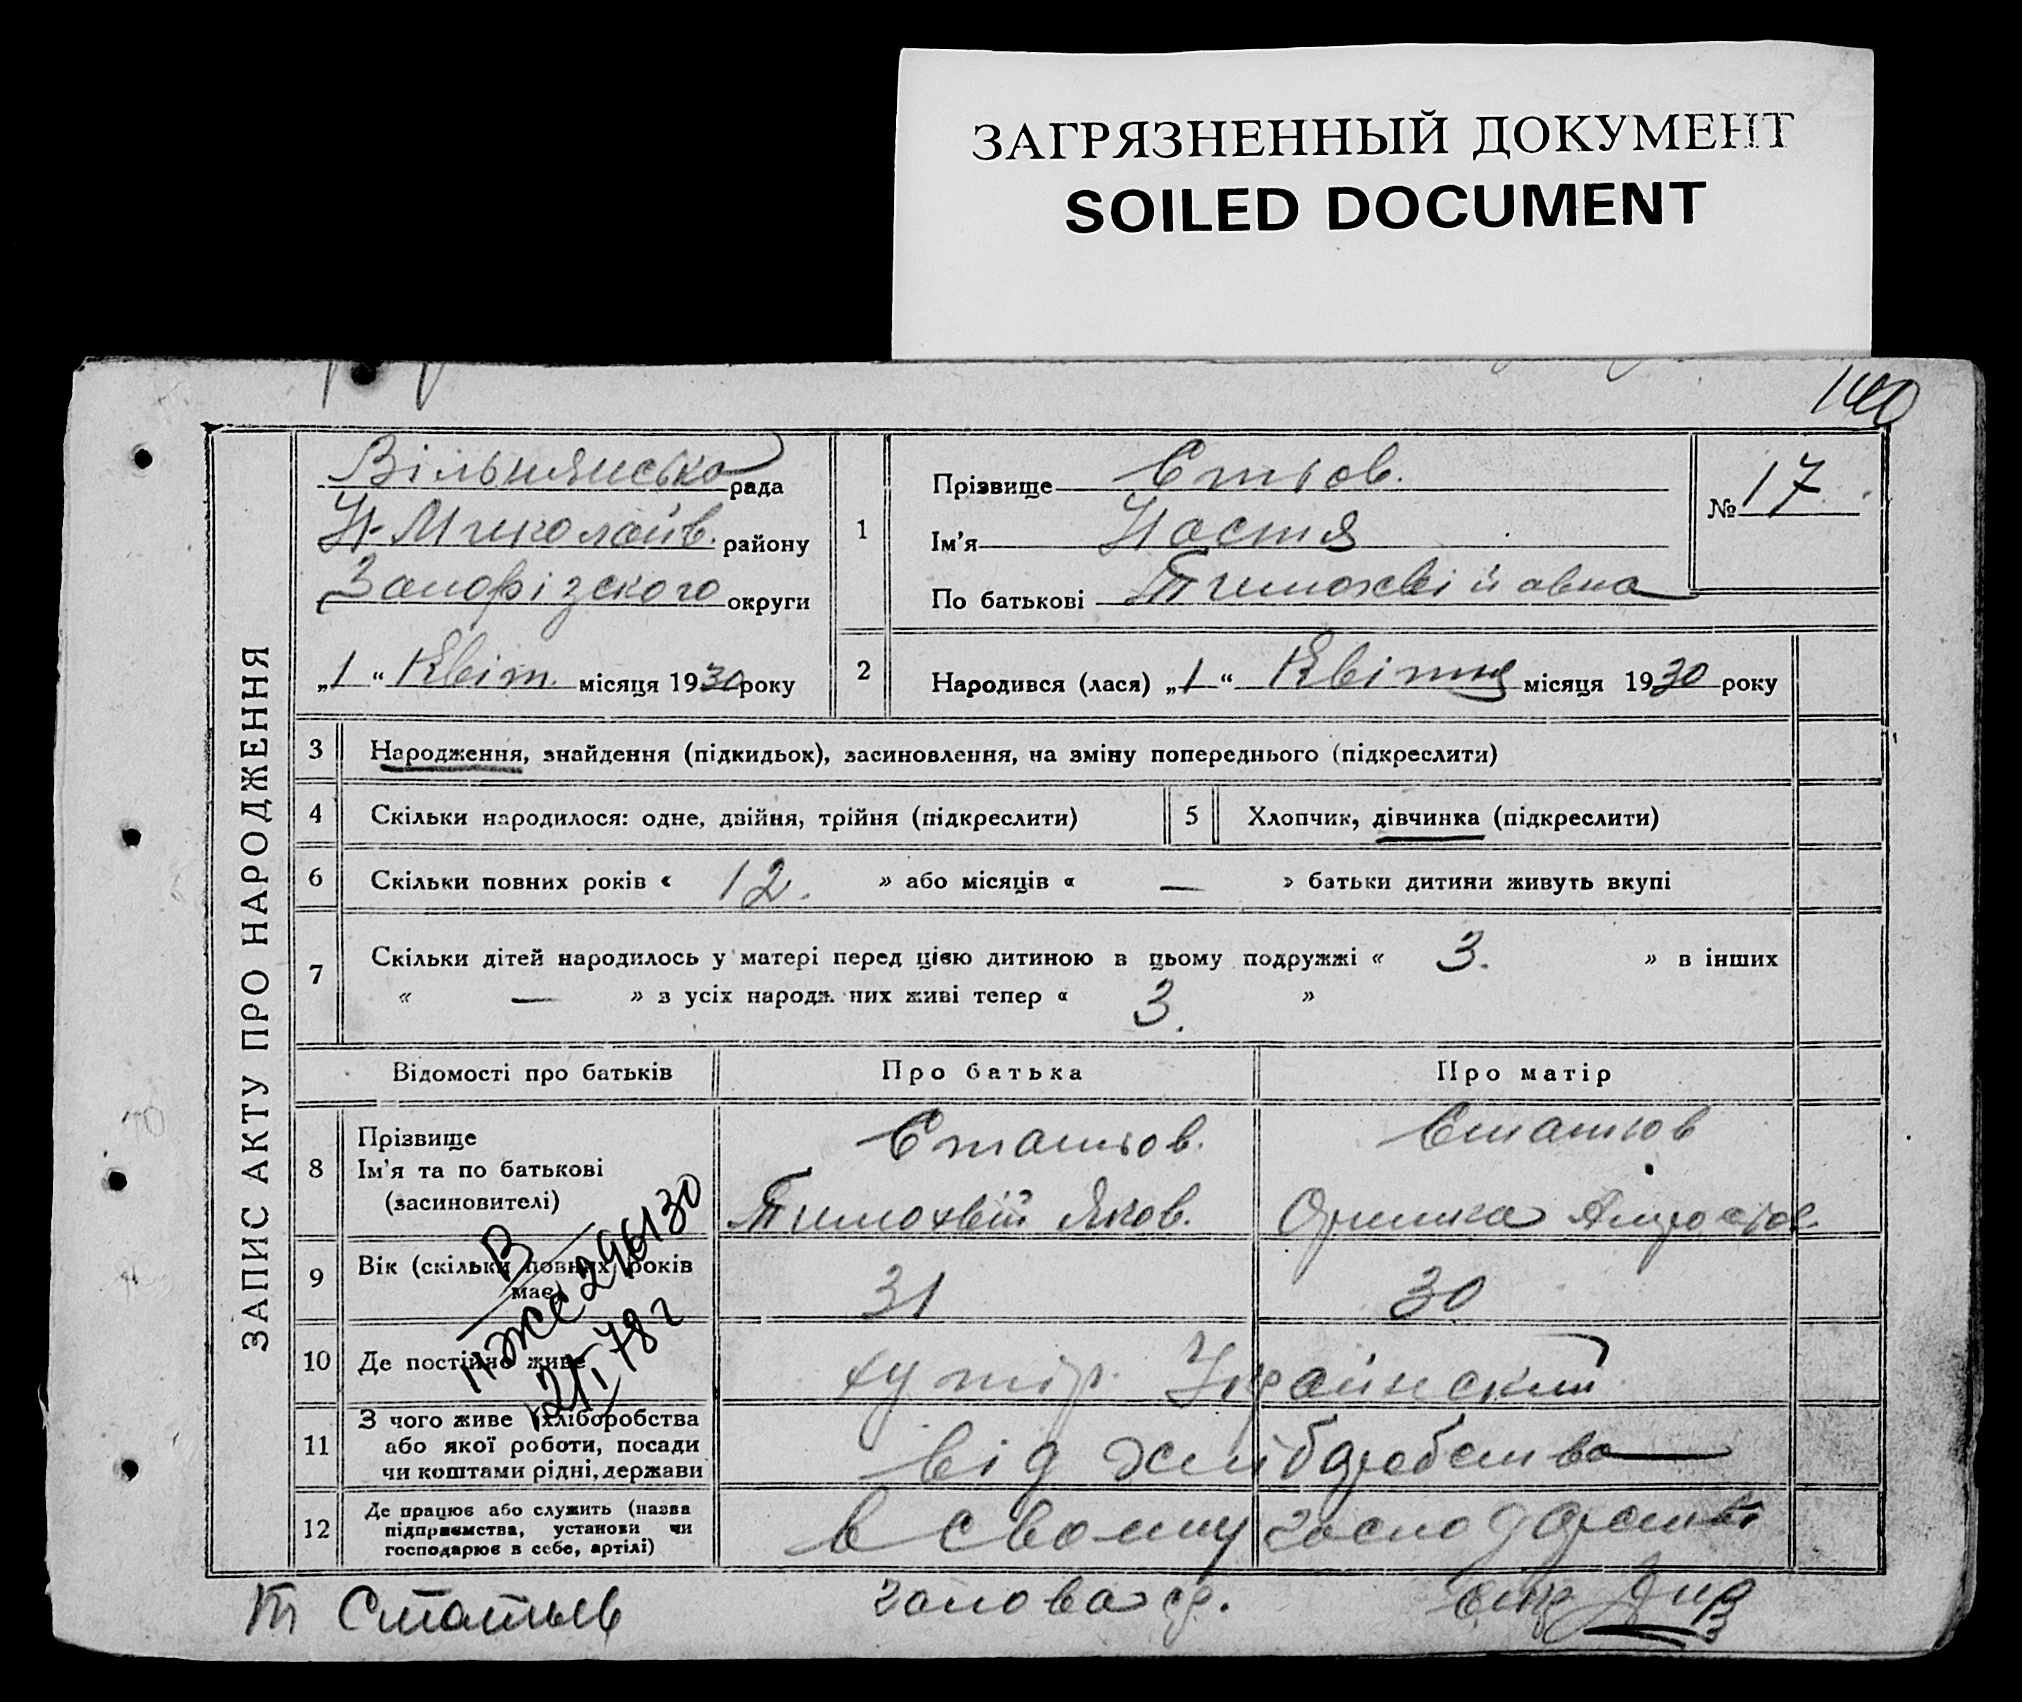 ЗАГРЯЗНЕННЫЙ ДОКУМЕНТ
SOILED DOCUMENT
140
ЗАПИС АКТУ ПРО НАРОДЖЕННЯ
Вільнянська рада
Н-Миколаїв. району
Запорізского округи
„1“ Квіт. місяця 1930 року
1
Прізвище
Ім'я Настя
По батькові Тимохвіївна
№ 17
2
Народився (лася) „1“ Квітня місяця 1930 року
3 Народження, знайдення (підкидьок), засиновлення, на зміну попереднього (підкреслити)
4 Скільки народилося: одне, двійня, трійня (підкреслити)
5 Хлопчик, дівчинка (підкреслити)
6 Скільки повних років « 12. » або місяців « — » батьки дитини живуть вкупі
7 Скільки дітей народилось у матері перед цією дитиною в цьому подружжі « 3. » в інших
« — » з усіх народж них живі тепер « 3. »
Відомості про батьків Про батька Про матір
8 Прізвище
Ім'я та по батькові
(засиновителі)
Статьов. Статьов
Тимохвій Яков. Оришка
9 Вік (скільки повних років
має)
31 30
10 Де постійно живе хутір. Українский
11 З чого живе (хліборобства
або якої роботи, посади
чи коштами рідні, держави
від хліборобства
12 Де працює або служить (назва
підприємства, установи чи
господарює в себе, артілі)
в свому господарстві
В
296130
78 г
Т Статьев голова ср.